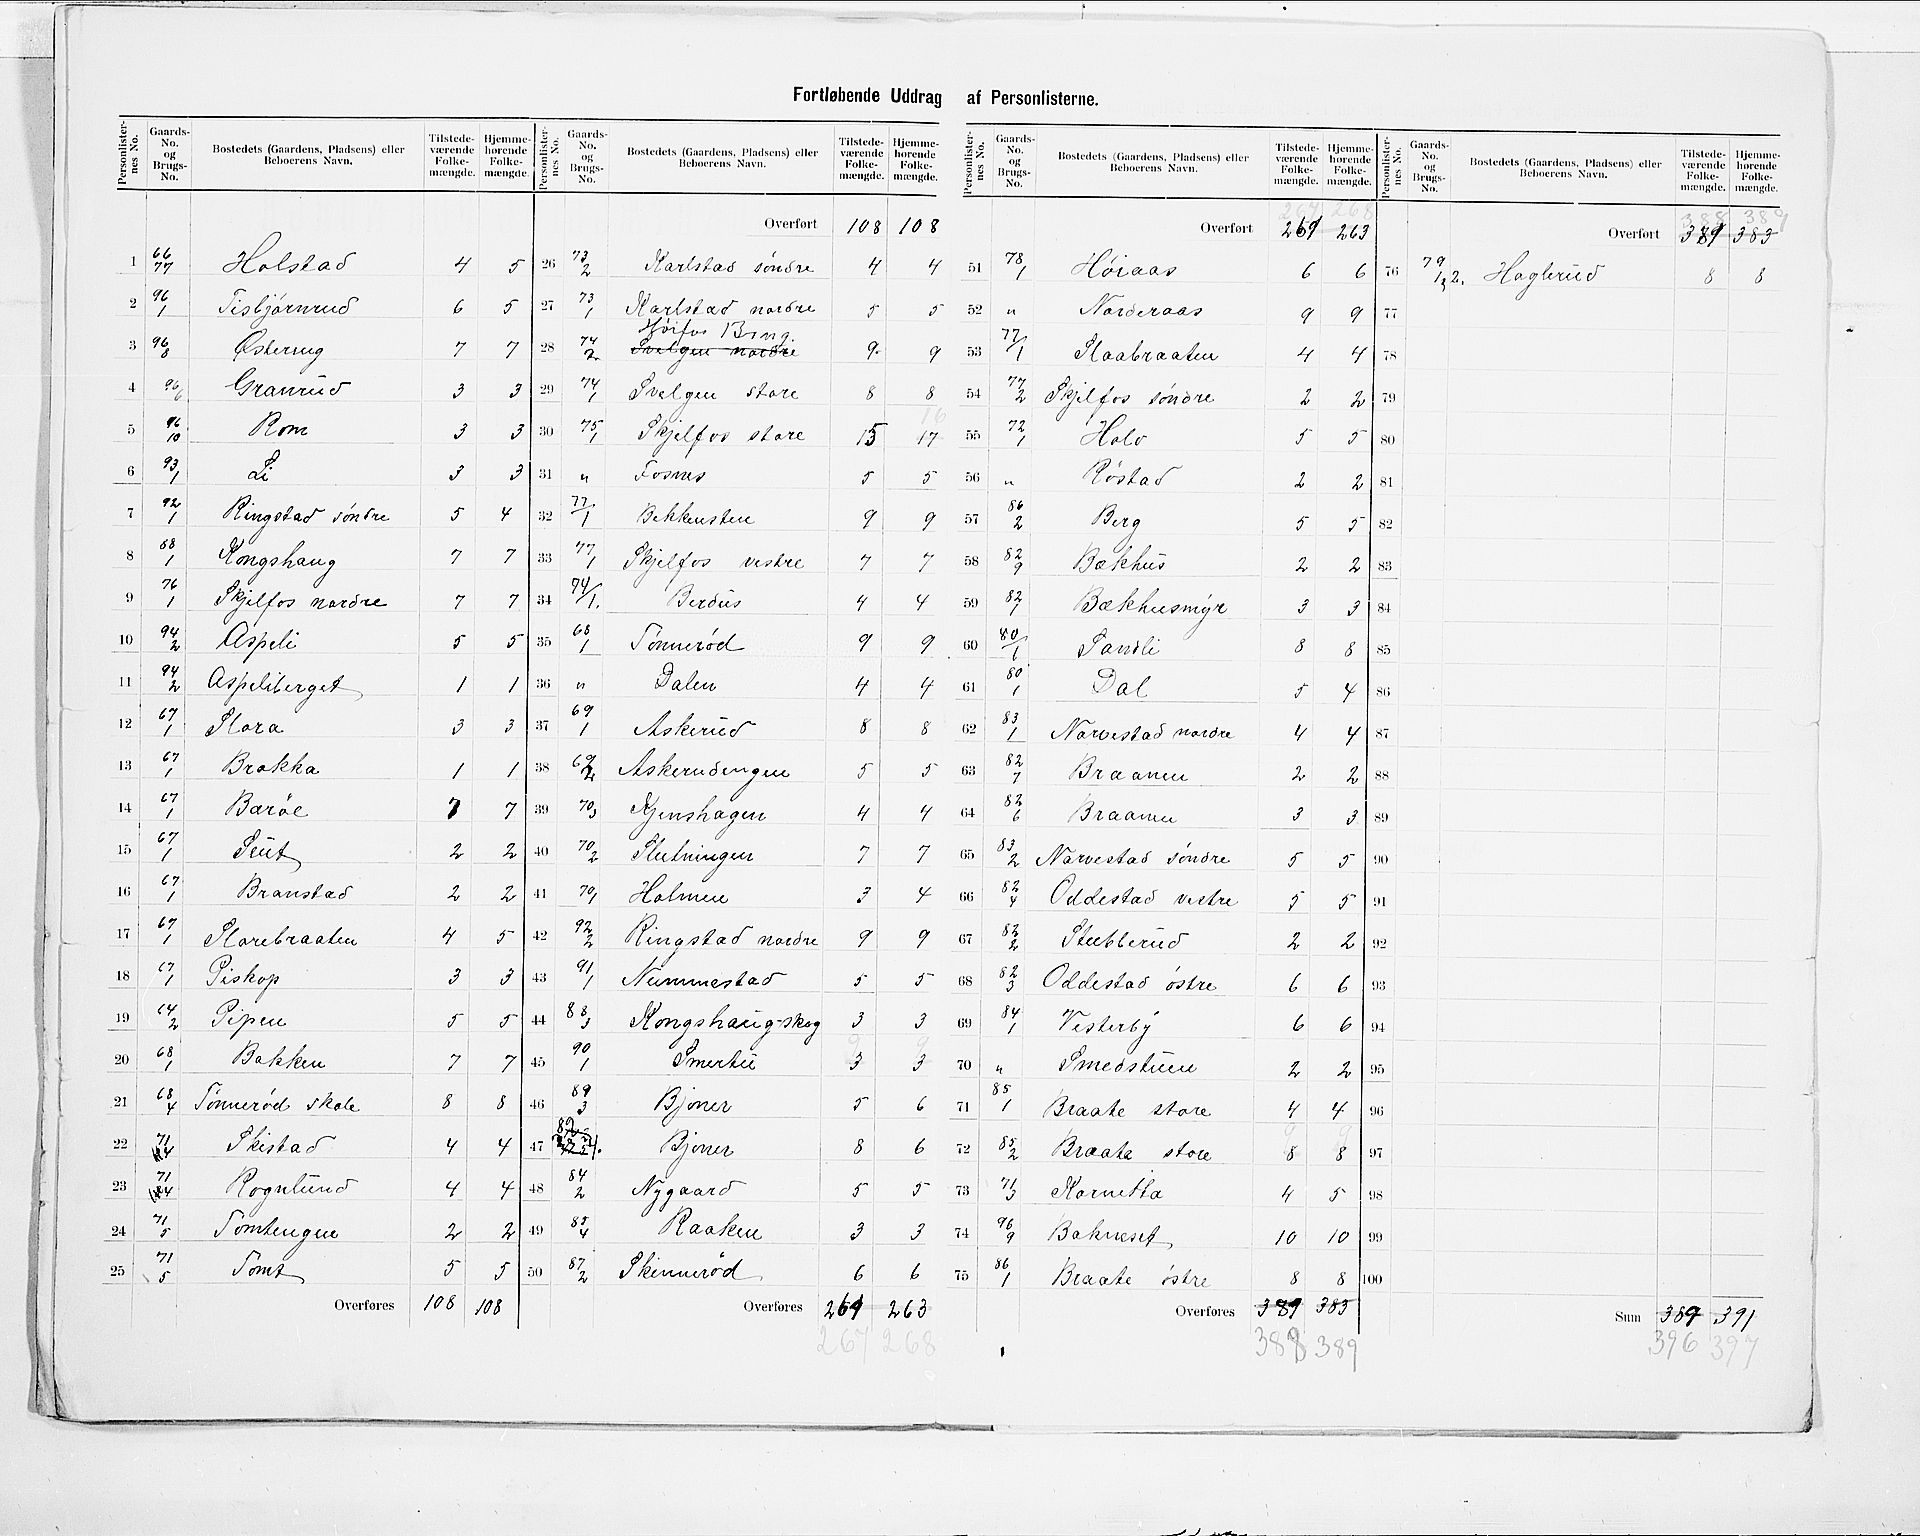 Fortløbende Uddrag af Personlisterne.
Personlister-nes No. Gaards-No. og Brugs-No. Bostedets (Gaardens, Pladsens) eller Beboerens Navn. Tilstede-værende Folke-mængde. Hjemme-hørende Folke-mængde.
1 66/77 Holstad 4 5
2 96/1 Tisbjørnrud 6 5
3 96/8 Østerrug 7 7
4 96/6 Granrud 3 3
5 96/10 Rom 3 3
6 93/1 Li 3 3
7 92/1 Ringstad søndre 5 4
8 88/1 Kongshaug 7 7
9 76/1 Skjelfos nordre 7 7
10 94/2 Aspeli 5 5
11 94/2 Aspeliberget 1 1
12 67/1 Slora 3 3
13 67/1 Brakka 1 1
14 67/1 Barøe 7 7
15 67/1 Sæt 2 2
16 67/1 Branstad 2 2
17 67/1 Slorebraaten 4 5
18 67/1 Piskop 3 3
19 64/2 Pipen 5 5
20 68/1 Bakken 7 7
21 68/4 Tønnerød skole 8 8
22 71/4 Skistad 4 4
23 71/4 Rognlund 4 4
24 71/5 Tomtengen 2 2
25 71/5 Tomt 5 5
Overføres 108 108
Personlister-nes No. Gaards-No. og Brugs-No. Bostedets (Gaardens, Pladsens) eller Beboerens Navn. Tilstede-værende Folke-mængde. Hjemme-hørende Folke-mængde.
Overført 108 108
26 73/2 Karlstad søndre 4 4
27 73/1 Karlstad nordre 5 5
Høifos Brug
28 74/2 Svelgen nordre 9 9
29 74/1 Svelgen store 8 8
16
30 75/1 Skjelfos store 15 17
31 " Fosnes 5 5
32 77/1 Bekkensten 9 9
33 77/1 Skjelfos vestre 7 7
34 74/1. Berdus 4 4
35 68/1 Tønnerød 9 9
36 " Dalen 4 4
37 69/1 Askerud 8 8
38 69/2 Askerudengen 5 5
39 70/3 Kjenshagen 4 4
40 70/2 Slutningen 7 7
41 70/1 Holmen 3 4
42 92/2 Ringstad nordre 9 9
43 91/1 Nummestad 5 5
44 88/3 Kongshaug-skog 3 3
9 9
45 90/1 Smertu 3 3
46 89/3 Bjoner 5 6
47 Bjoner 8 6
48 84/2 Nygaard 5 5
49 85/4 Raaken 3 3
50 87/2 Skinnerød 6 6
Overføres 261 263
267 268
Personlister-nes No. Gaards-No. og Brugs-No. Bostedets (Gaardens, Pladsens) eller Beboerens Navn. Tilstede-værende Folke-mængde. Hjemme-hørende Folke-mængde.
267 268
Overført 261 263
51 78/1 Høiaas 6 6
52 " Norderaas 9 9
53 77/1 Slaabraaten 4 4
54 77/2 Skjelfos søndre 2 2
55 72/1 Holo 5 5
56 " Røstad 2 2
57 86/2 Berg 5 5
58 82/9 Bækhus 2 2
59 82/1 Bækhusmyr 3 3
60 80/1 Sandli 8 8
61 80/1 Dal 5 4
62 83/1 Narvestad nordre 4 4
63 82/7 Braanen 2 2
64 82/6 Braanen 3 3
65 83/2 Narvestad søndre 5 5
66 82/4 Oddestad vestre 5 5
67 82/2 Stubberud 2 2
68 82/3 Oddestad østre 6 6
69 84/1 Vesterby 6 6
70 " Smedstuen 2 2
71 85/1 Braate store 4 4
9 9
72 85/2 Braate store 8 8
73 71/3 Kornetta 4 5
74 96/9 Bakneset 10 10
75 86/1 Braate østre 8 8
Overføres 381 383
388 389
Personlister-nes No. Gaards-No. og Brugs-No. Bostedets (Gaardens, Pladsens) eller Beboerens Navn. Tilstede-værende Folke-mængde. Hjemme-hørende Folke-mængde.
388 389
Overført 381 383
76 79/1,2. Haglerud 8 8
77
78
79
80
81
82
83
84
85
86
87
88
89
90
91
92
93
94
95
96
97
98
99
100
Sum 389 391
396 397